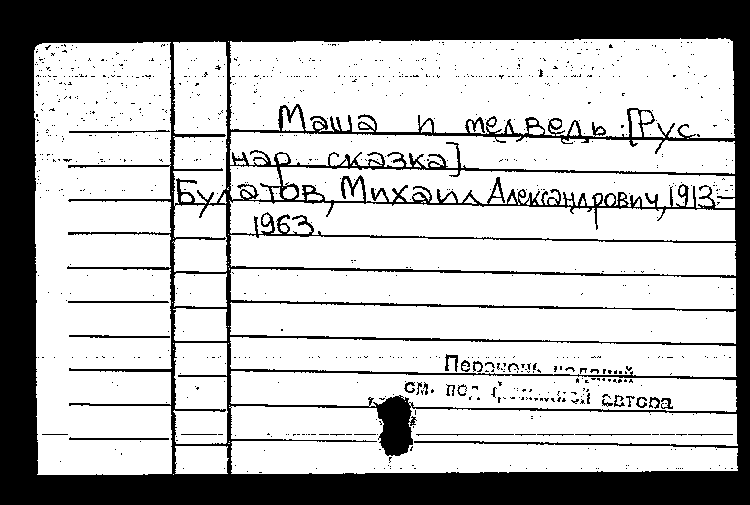 Маша и медведь : [Рус.
нар. сказка].
Булатов, Михаил Александрович, 1913–
1963.
Перечень изданий
см. под фамилией автора